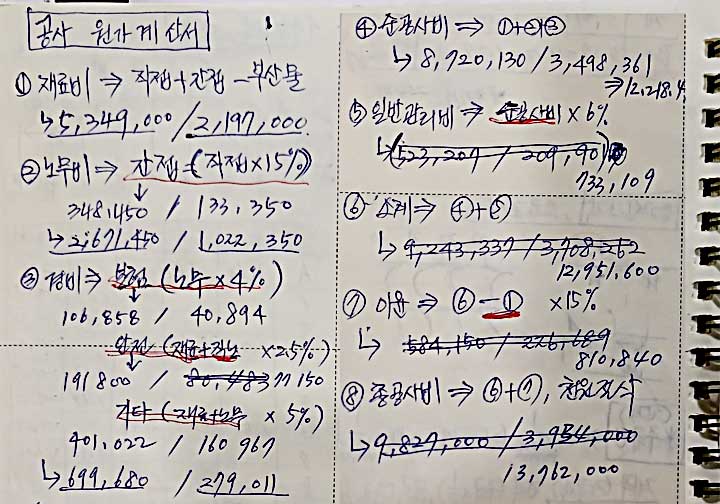 공사 원가계산서
① 재료비 ⇒ 직접+간접-부산물
↳ 5,349,000 / 2,197,000
② 노무비 ⇒ 간접=(직접×15%)
↓
348,450 / 133,350
↳ 2,671,450 / 1,022,350
③ 경비 ⇒ 보험 (노무×4%)
↓
106,858 / 40,894
안전 (재료+직노 ×2.5%)
↓
191800 / 80,483 77150
기타 (재료+노무 × 5%)
401,022 / 160967
↳ 699,680 / 279,011
④ 순공사비 ⇒ ①+②+③
↳ 8,720,130 / 3,498,361
⇒ 12,218.4
⑤ 일반관리비 ⇒ 순공사비×6%
↳ (523,207 / 209,901)
733,109
⑥ 소계 ⇒ ④+⑤
↳ 9,243,337 / 3,708,262
12,951,600
⑦ 이윤 ⇒ ⑥-① ×15%
↳ 584,150 / 226,689
810,840
⑧ 총공사비 ⇒ ⑥+⑦, 천원절삭
↳ 9,827,000 / 3,934,000
13,762,000